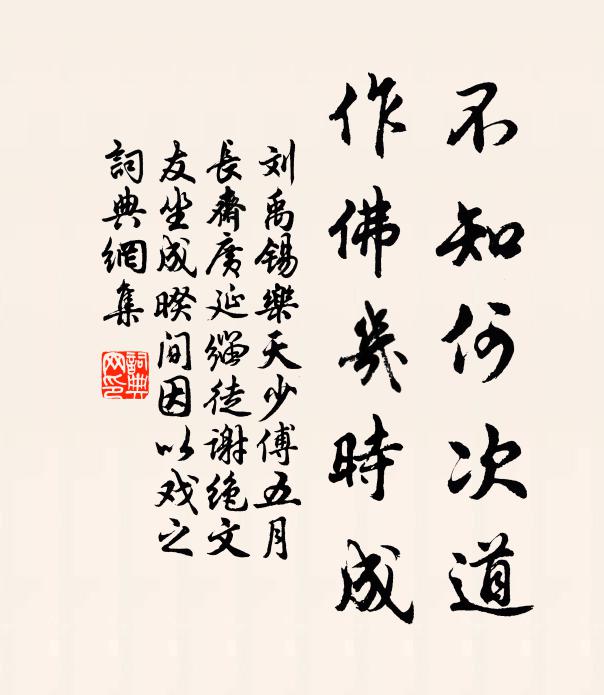 不知何次道
作佛幾時成
刘禹锡樂天少傅五月
長齋廣延緇徒谢绝文
友坐成暌间因以戏之
詞典網集
詞典
网印